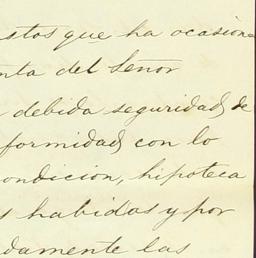 stos que ha ocasion=
nta del Senor
debida seguridad, de
formidad con lo
ondicion, hipoteca
s habidos y por
damente las